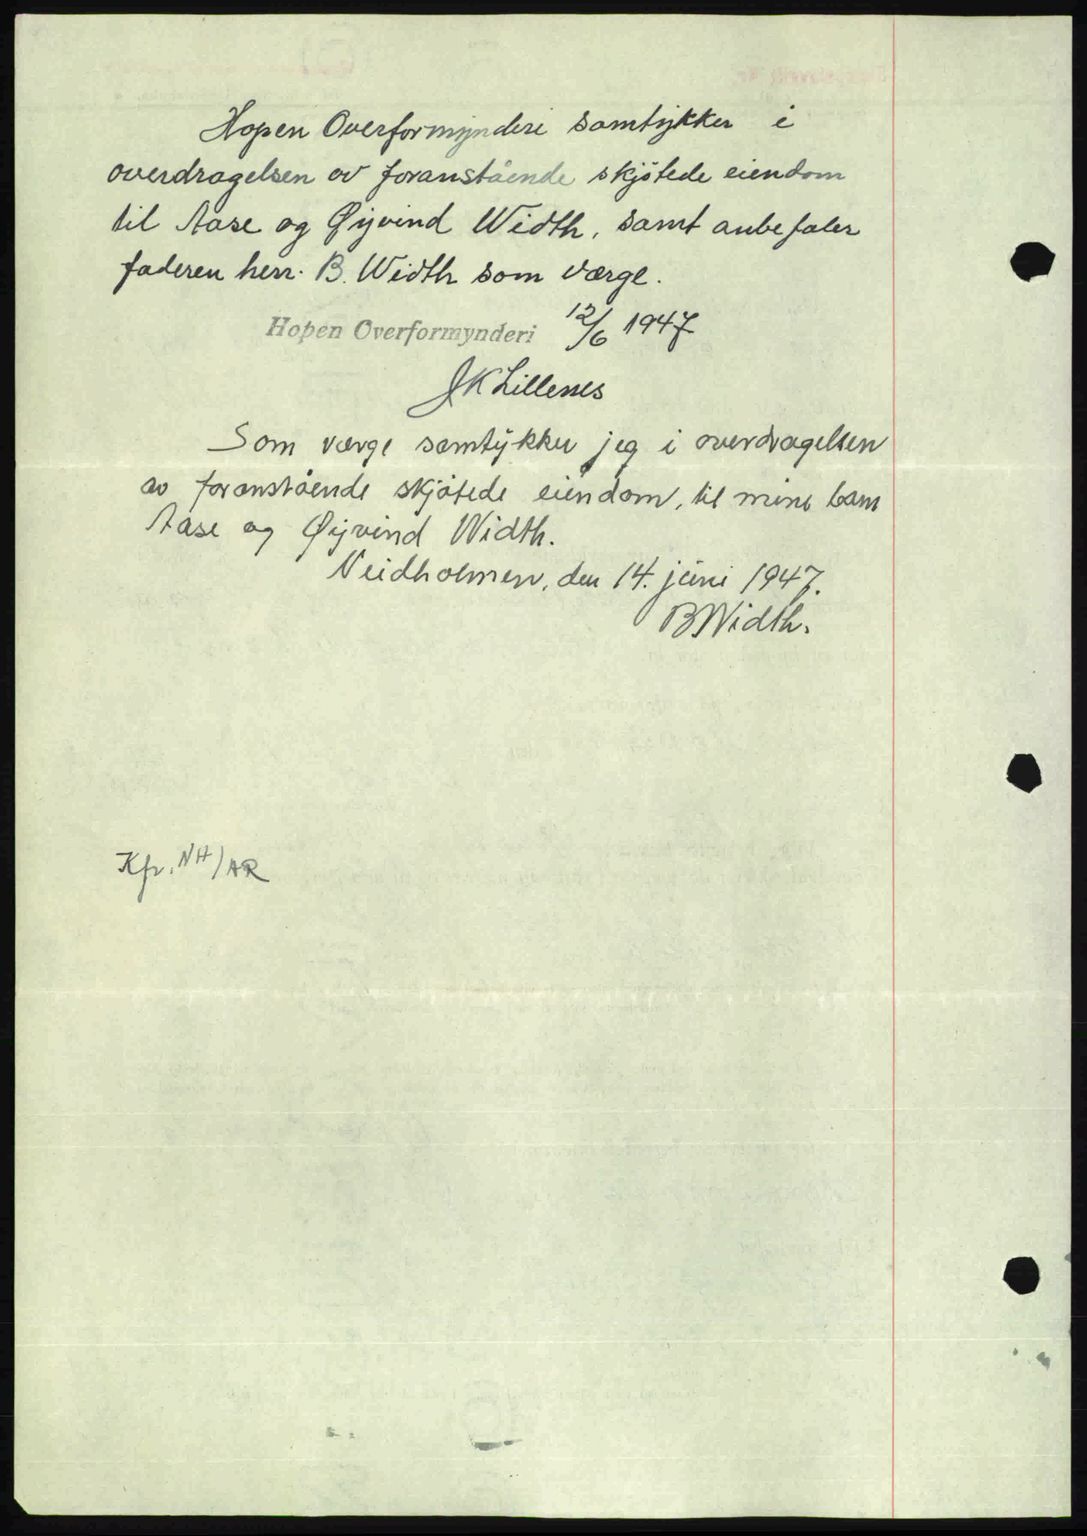 Hopen Overformynderi samtykker i
overdragelsen av foranstående skjøtede eiendom
til Aase og Øyvind Width, samt anbefaler
faderen herr. B. Width som værge.
Hopen Overformynderi 12/6 1947
JK Lillenes
Som værge samtykker jeg i overdragelsen
av foranstående skjøtede eiendom, til mine barn
Aase og Øyvind Width.
Neidholmen, den 14. juni 1947.
B Width.
Kfr. NH/AR